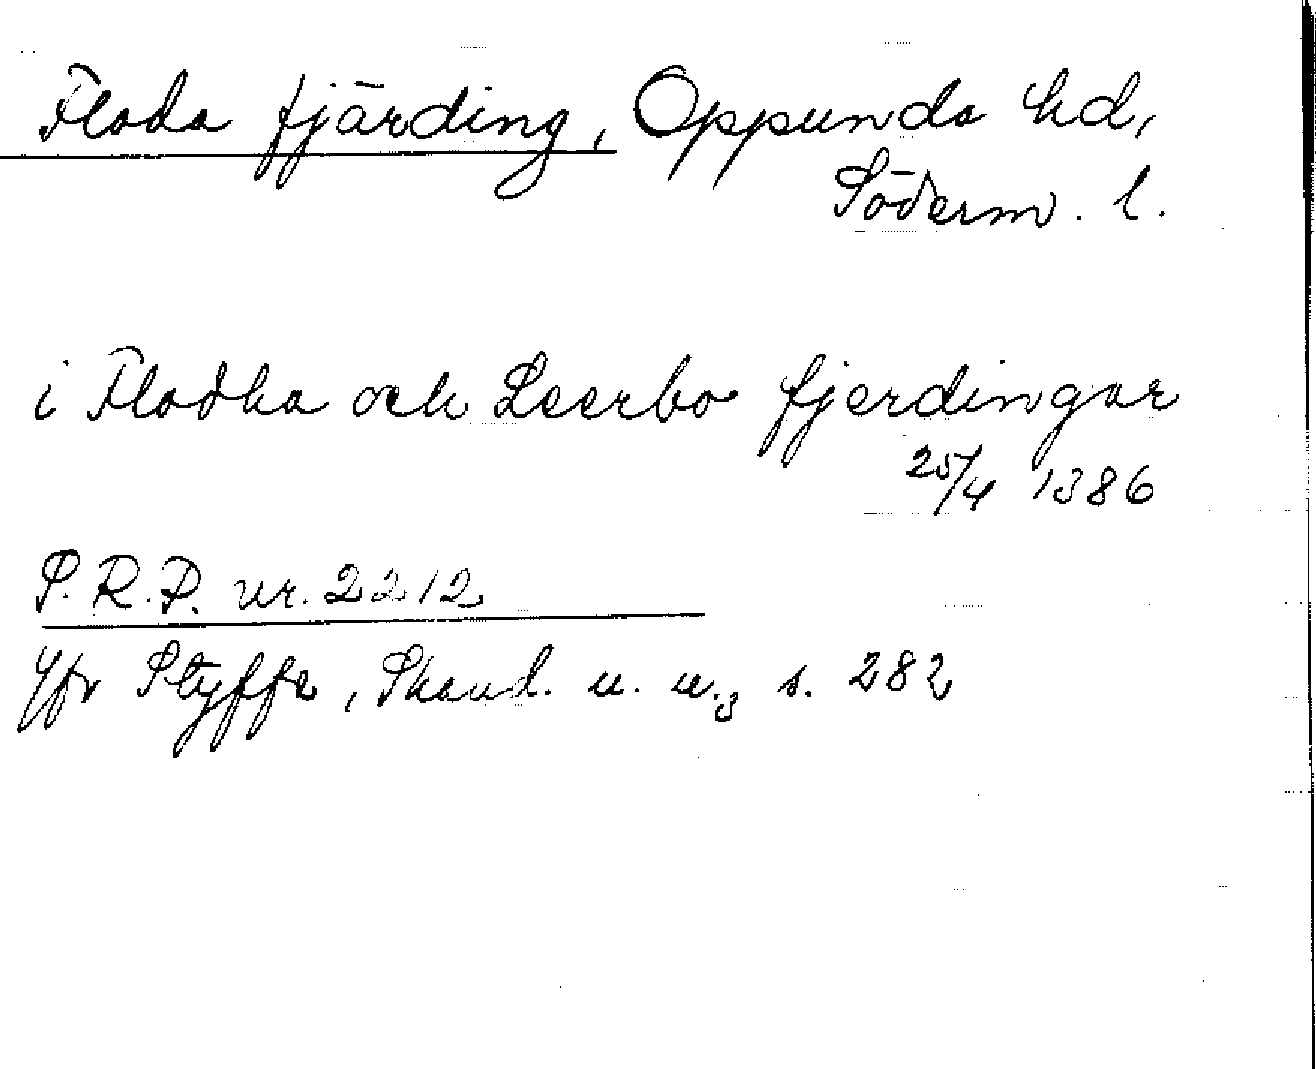 Floda fjärding, Oppunda hd,
Söderm. l.
i Flodha och Leerbo fjerdingar
25/4 1386
S.R.P. nr. 2212
Jfr Styffe, Skand. u. u.3 s. 282